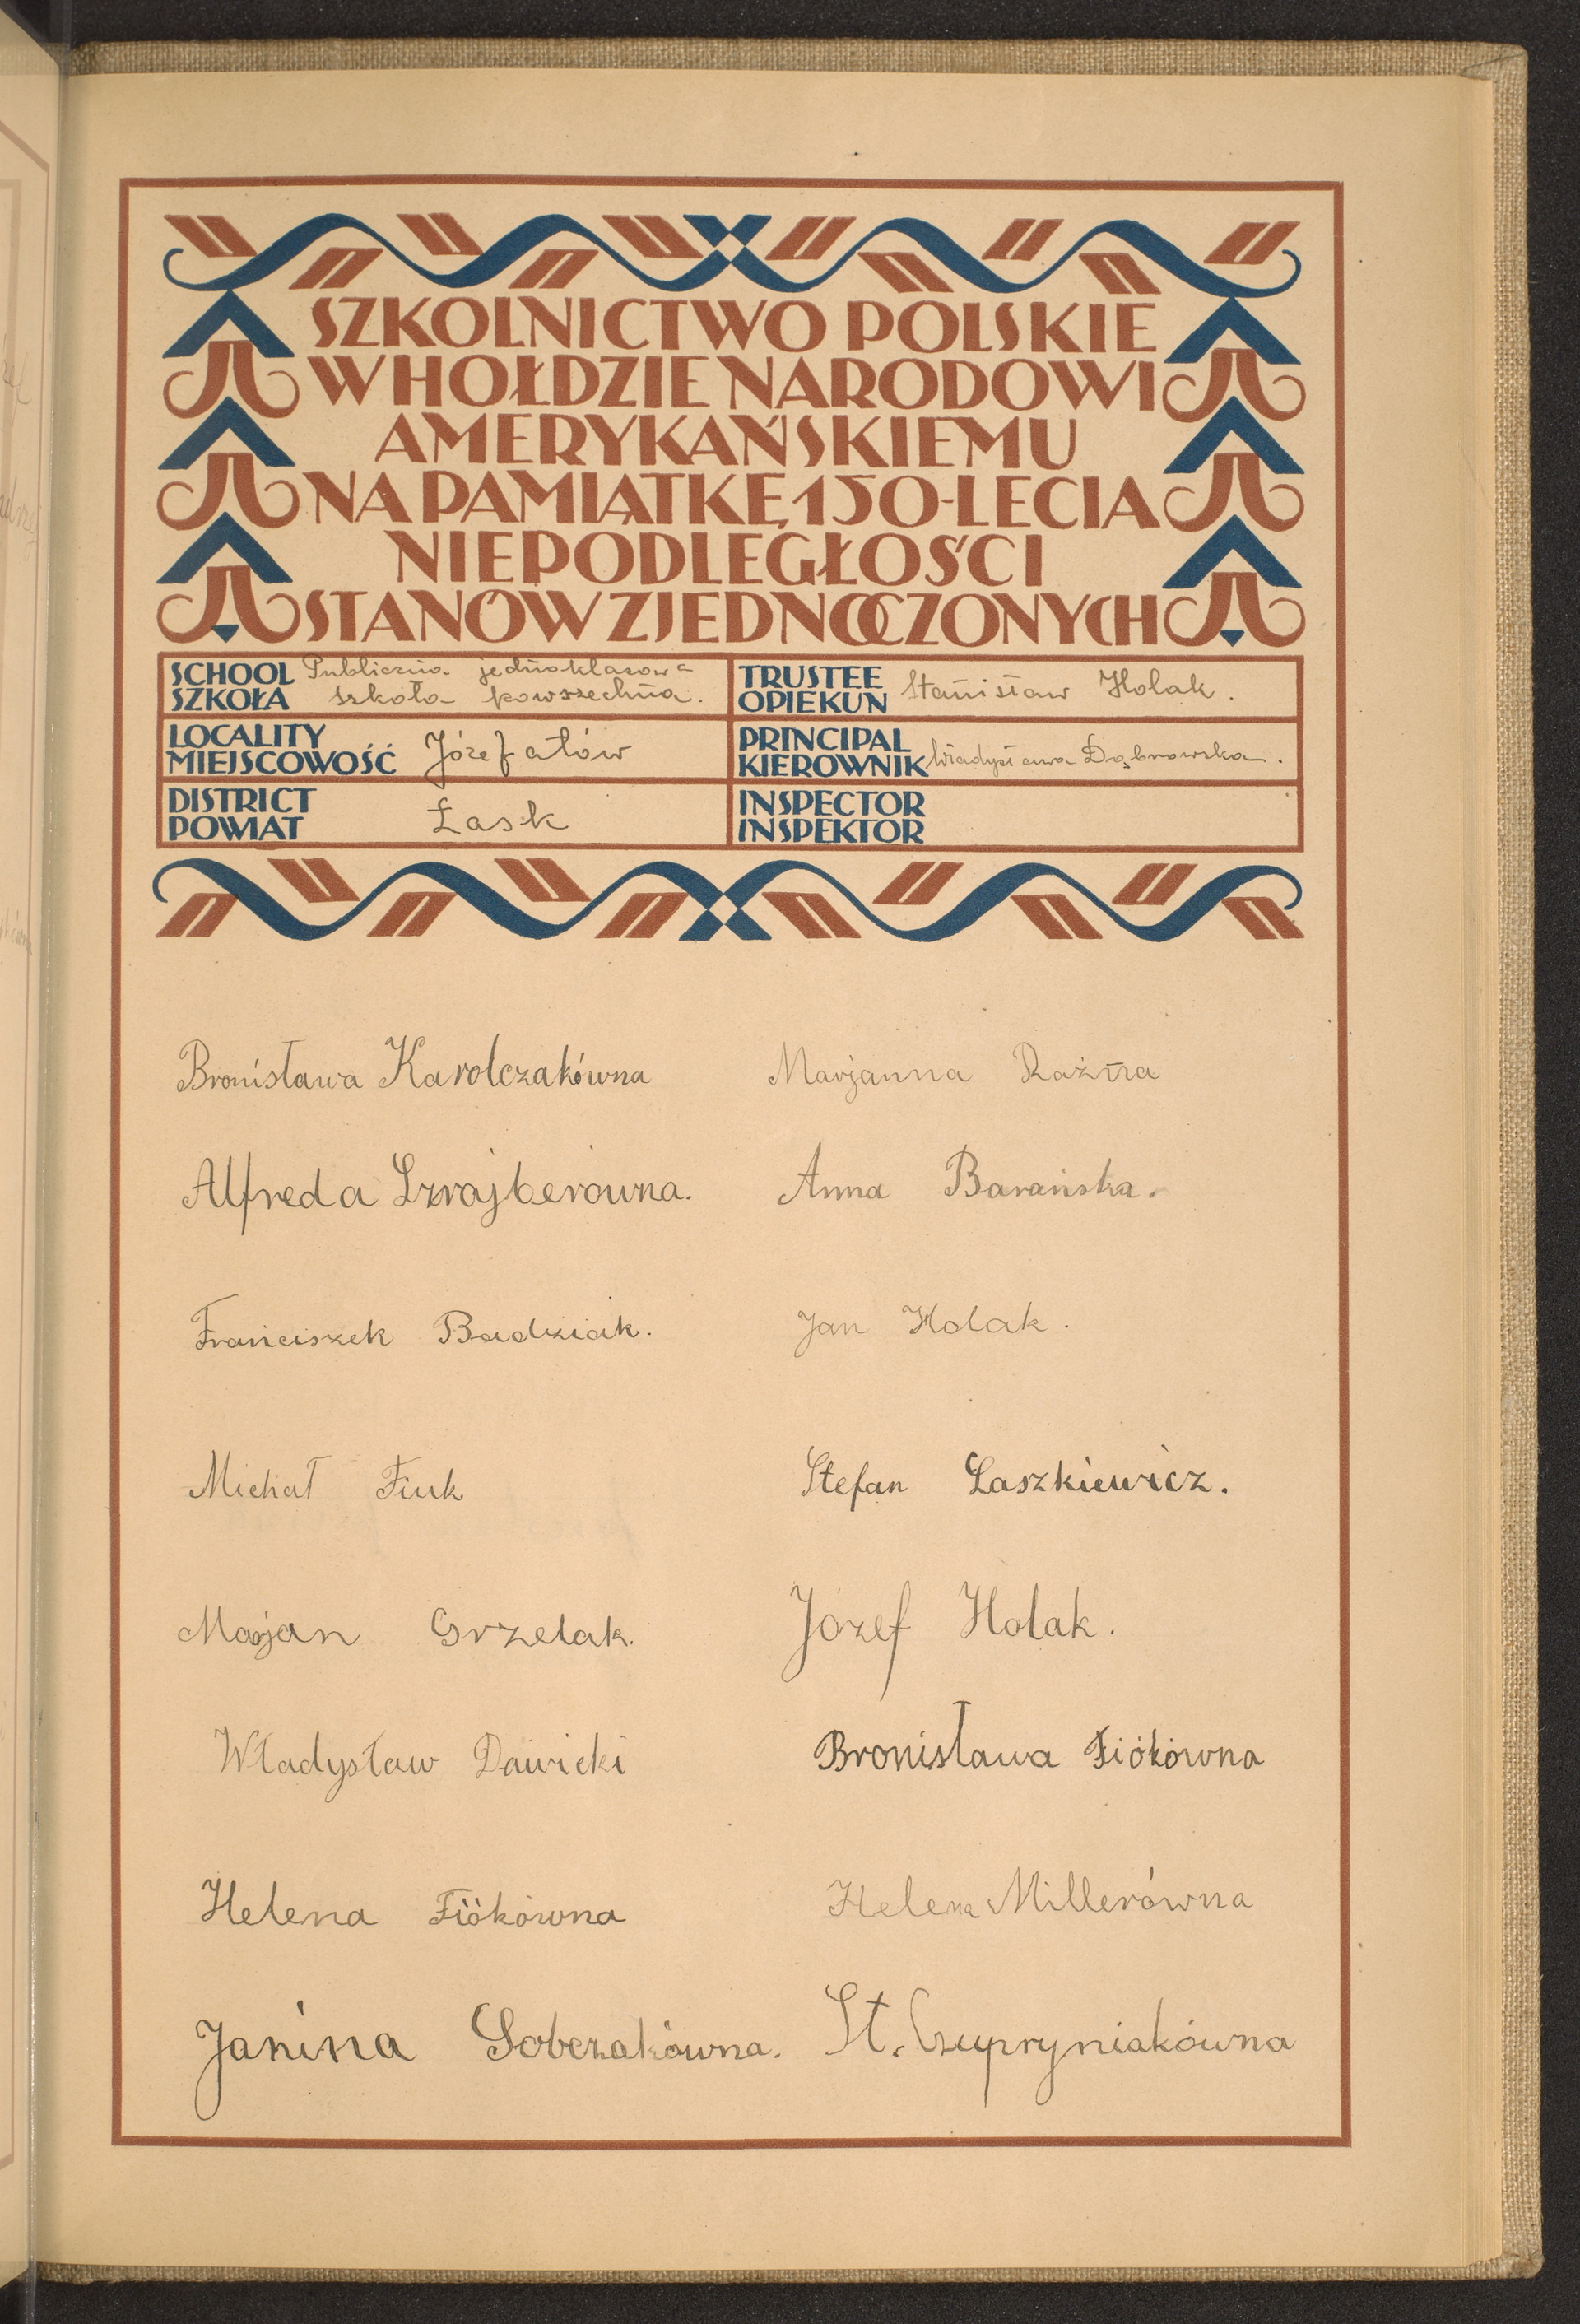 SZKOLNICTWO POLSKIE
W HOŁDZIE NARODOWI
AMERYKAŃSKIEMU
NA PAMIĄTKĘ 150-LECIA
NIEPODLEGŁOŚCI
STANÓW ZJEDNOCZONYCH
SCHOOL Publiczna jednoklasowa
SZKOŁA szkoła powszechna.
TRUSTEE
OPIEKUN Stanisław Holak.
LOCALITY
MIEJSCOWOŚĆ Józefatów
PRINCIPAL
KIEROWNIK Władysława Dąbrowska.
DISTRICT
POWIAT Łask
INSPECTOR
INSPEKTOR
Bronisława Karolczakówna Marjanna Raźna
Alfreda Szrajberówna. Anna Barańska.
Franciszek Badziak. Jan Holak.
Michał Fiuk Stefan Laszkiewicz.
Marjan Grzelak. Józef Holak.
Władysław Dawicki Bronisława Fiókówna
Helena Fiókówna Helena Millerówna
Janina Sobczakówna. St. Czupryniakówna